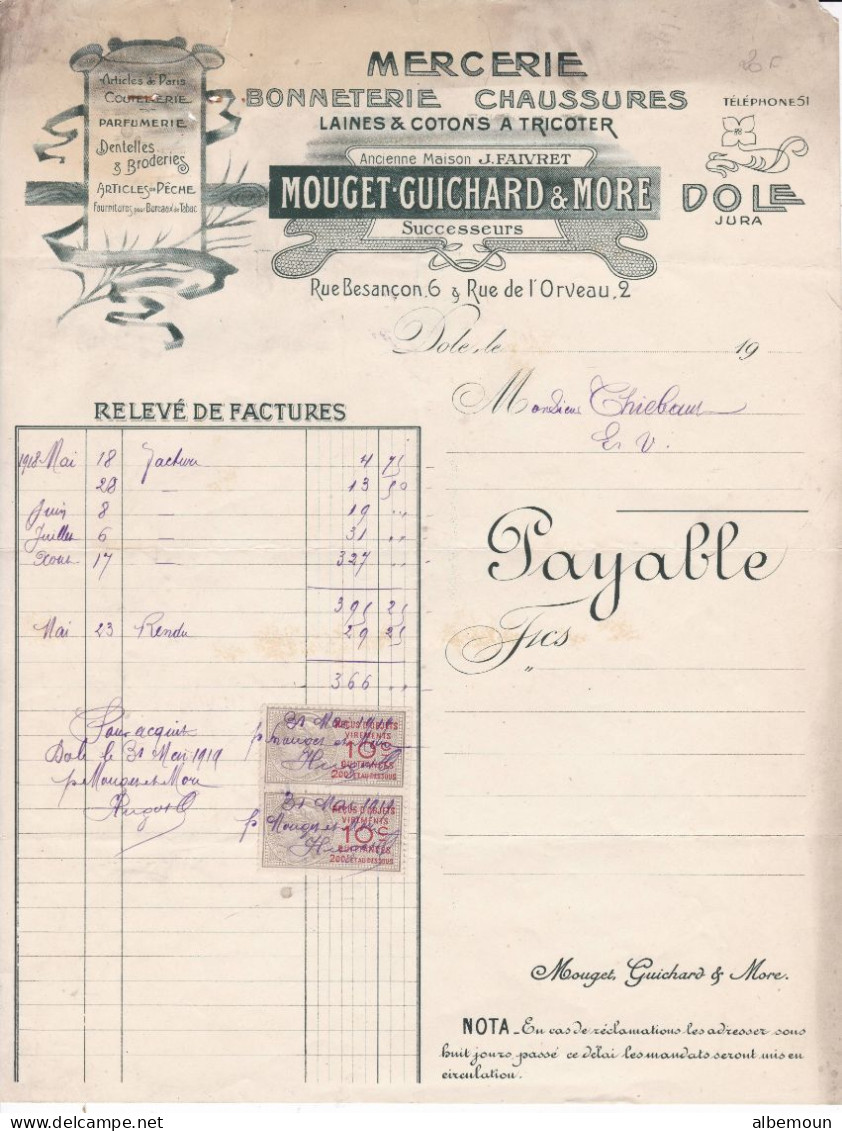 Articles de Paris
COUTELLERIE
PARFUMERIE
Dentelles
& Broderies
ARTICLES DE PÊCHE
Fournitures pour Bureaux de Tabac
MERCERIE
BONNETERIE CHAUSSURES
LAINES & COTONS A TRICOTER
Ancienne Maison J. FAIVRET
MOUGET-GUICHARD & MORE
Successeurs
Rue Besançon, 6 & Rue de l'Orveau, 2
20 F
TÉLÉPHONE 51
DOLE
JURA
Dole, le 19
Monsieur Thiebaut
E. V.
RELEVÉ DE FACTURES
1918 Mai 18 Facture 4 75
28 — 13 50
Juin 8 — 19 ..
Juillet 6 — 31 ..
Aout 17 — 327 ..
395 25
Mai 23 Rendu 29 25
366 ..
Payable
Fcs
"
Pour acquit
Dole le 31 Mai 1919
p. Mouget et More
31 Mai 1919
REÇUS D'OBJETS
VIREMENTS
p Mouget et More
10c
QUITTANCES
200F ET AU DESSOUS
31 Mai 1919
REÇUS D'OBJETS
VIREMENTS
p Mouget et More
10c
QUITTANCES
200F ET AU DESSOUS
Mouget, Guichard & More.
NOTA _ En cas de réclamations les adresser sous
huit jours, passé ce délai les mandats seront mis en
circulation.
delcampe.net
albemoun